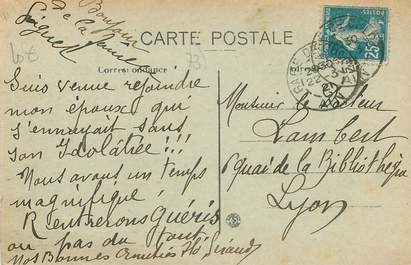 Bonjour
de la
CARTE POSTALE
Correspondance
Suis venue rejoindre
mon époux qui
s'ennuyait sans
son Idolâtrée!!!
Nous avons un temps
magnifique!
Rentrerons Guéris
ou pas du tout
Nos Bonnes Amitiés
Monsieur le Docteur
Lambert
6 quai de la Bibliothèque
Lyon
25